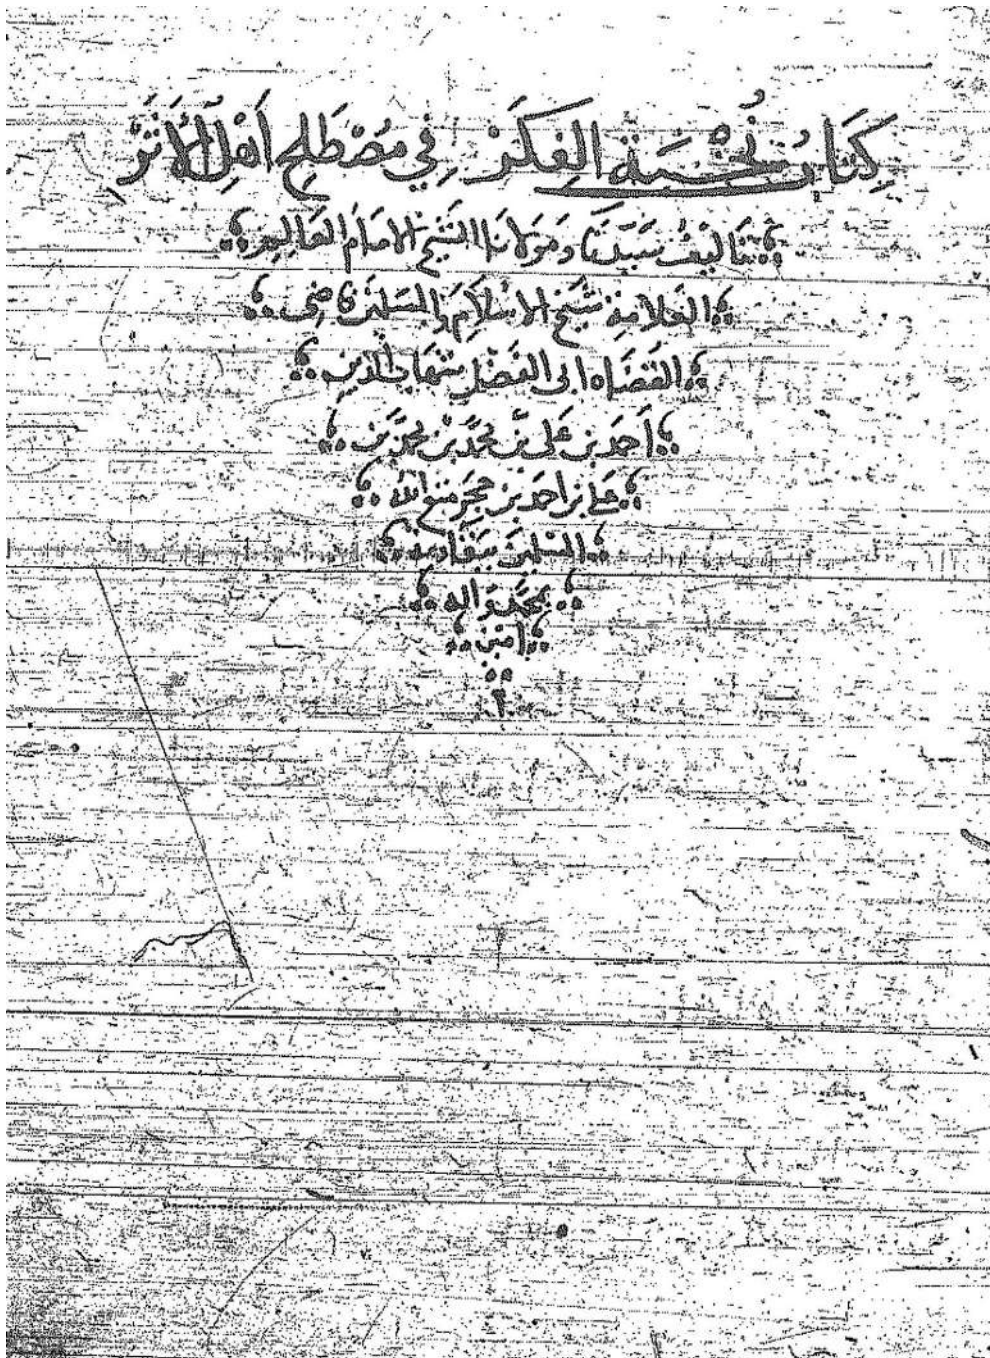 كِتَابُ نُخْبَةِ الفِكَرْ فِي مُصْطَلَحِ أَهْلِ الأَثَرْ
تاليف سيدنا ومولانا الشيخ الامام العالم
العلامة شيخ الاسلام والمسلمين قاضي
القضاه ابى الفضل شهاب الدين
احمد بن على بن محمد بن محمد بن
على بن احمد بن حجر متع الله
المسلمين ببقايه
بمحمد واله
امين